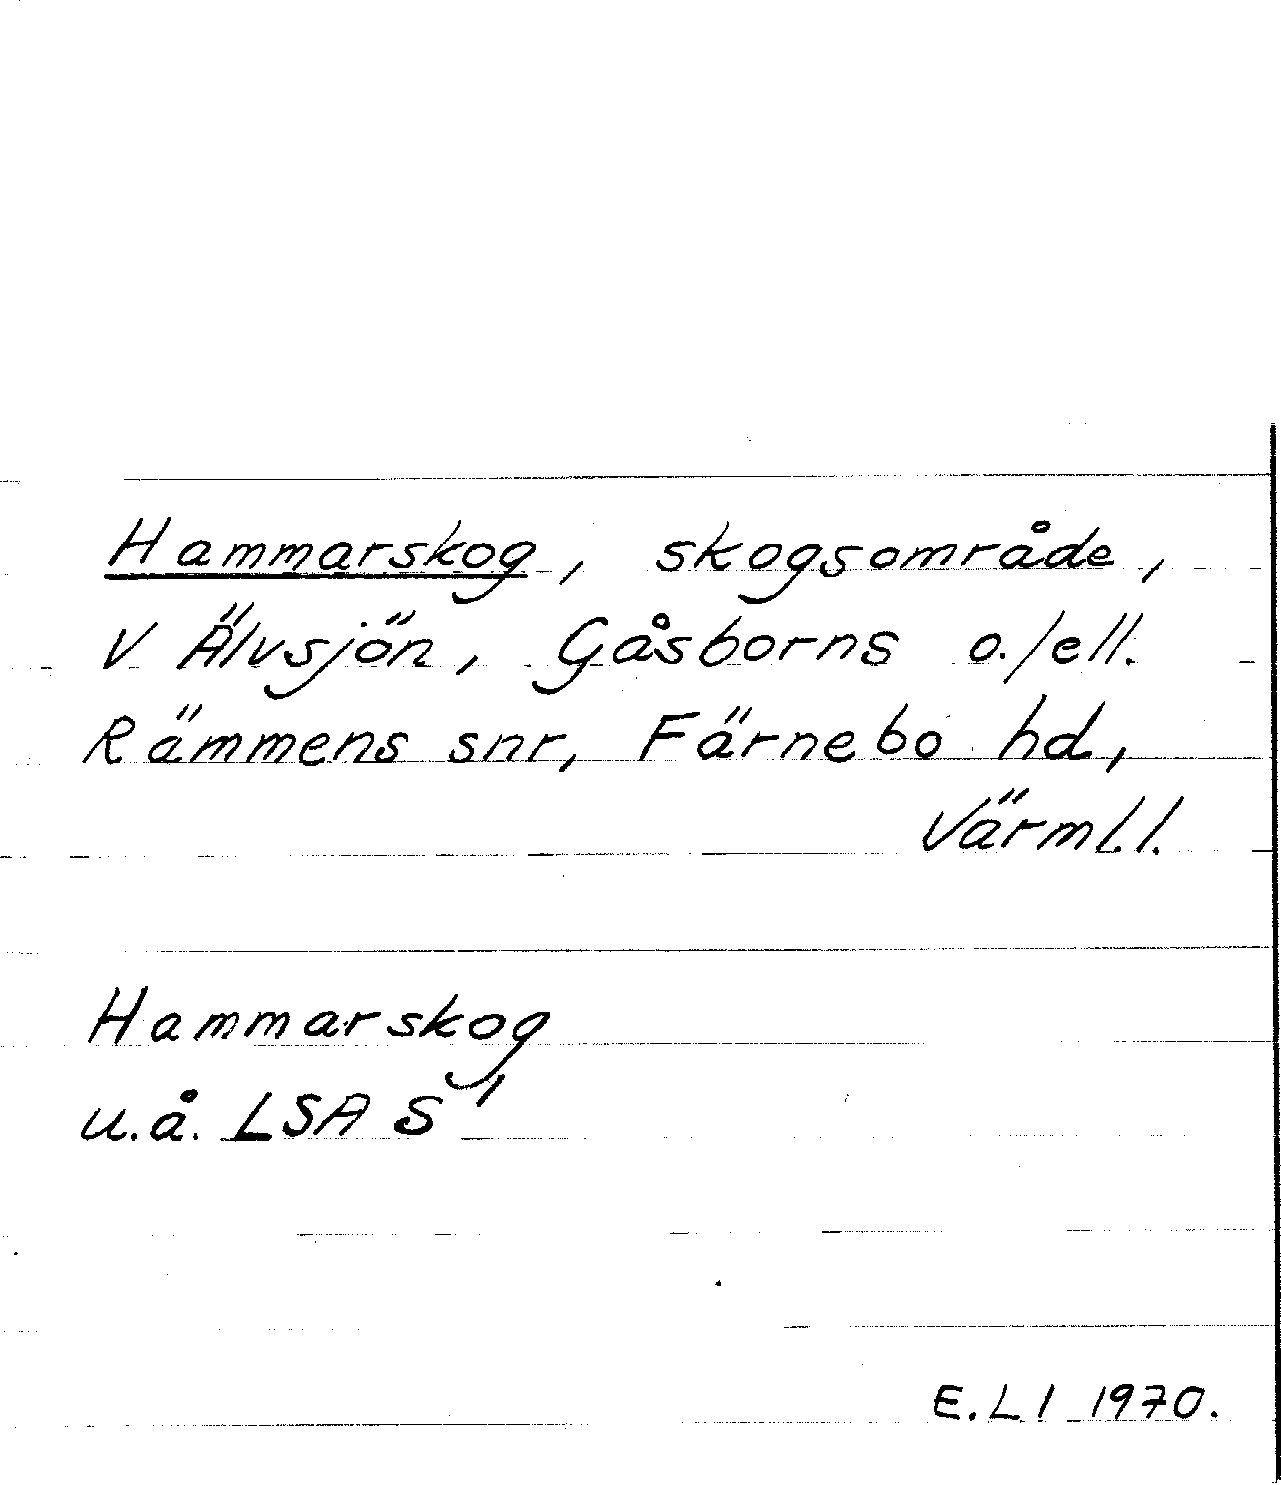 Hammarskog, skogsområde,
V Älvsjön, Gåsborns o./ell.
Rämmens snr, Färnebo hd,
Värml.l.
Hammarskog
u.å. LSA S'
E.Ll 1970.